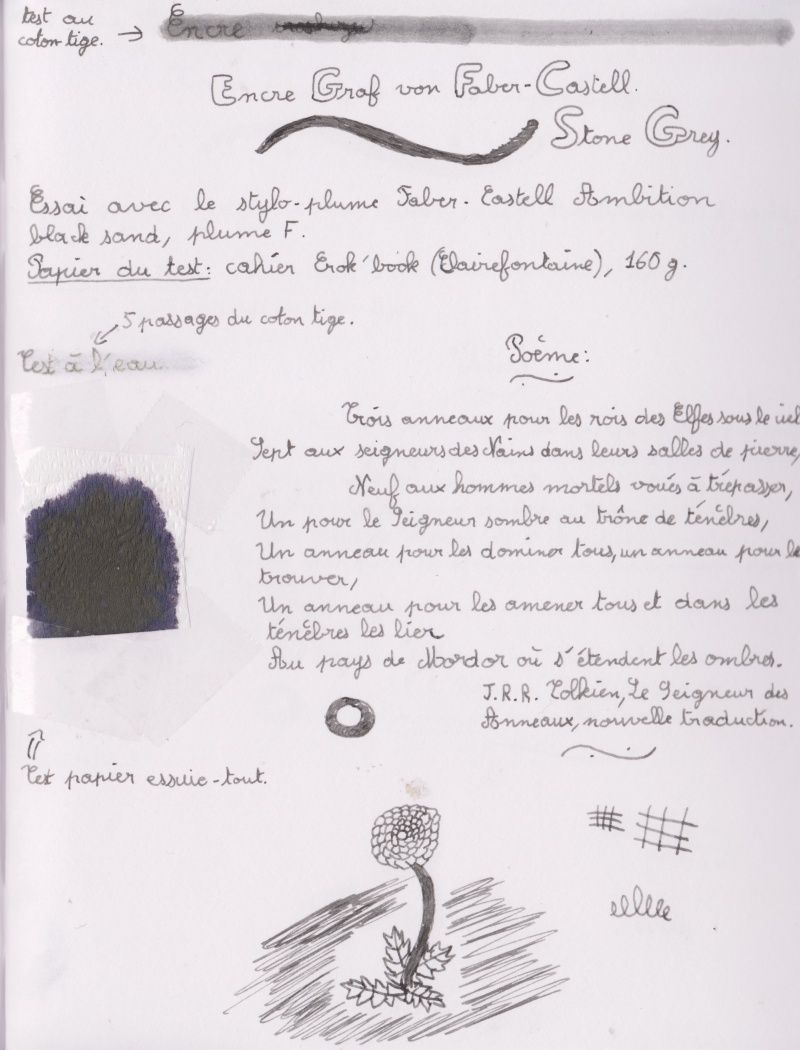 test au
coton-tige. → Encre
Encre Graf von Faber-Castell.
Stone Grey.
Essai avec le stylo-plume Faber-Castell Ambition
black sand, plume F.
Papier du test : cahier Crok'book (Clairefontaine), 160 g.
5 passages du coton tige.
Test à l'eau
Poème :
Trois anneaux pour les rois des Elfes sous le ciel
Sept aux seigneurs des Nains dans leurs salles de pierre,
Neuf aux hommes mortels voués à trépasser,
Un pour le Seigneur sombre au trône de ténèbres,
Un anneau pour les dominer tous, un anneau pour le
trouver,
Un anneau pour les amener tous et dans les
ténèbres les lier
Au pays de Mordor où s'étendent les ombres.
J.R.R. Tolkien, Le Seigneur des
Anneaux, nouvelle traduction.
Test papier essuie-tout.